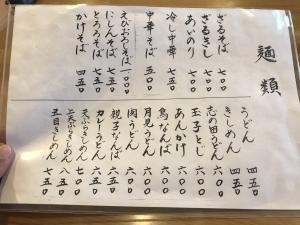 麺類
ざるそば 七〇〇
ざるきし 七〇〇
あいのり 七〇〇
冷し中華 七五〇
中華そば 五〇〇
えびおろしそば 一、〇〇〇
にしんそば 七五〇
とろろそば 七五〇
かけそば 四五〇
うどん 四五〇
きしめん 四五〇
志の田うどん 六〇〇
玉子とじ 六〇〇
あんかけ 六〇〇
鳥なんば 六〇〇
月見うどん 六〇〇
肉うどん 六〇〇
親子なんば 六五〇
カレーうどん 六五〇
天ぷらきしめん 七〇〇
上天ぷらきしめん 八五〇
五目きしめん 七五〇